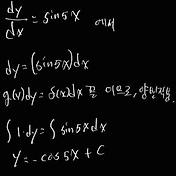 dy/dx = sin5x 에서
dy = (sin5x)dx
g(y)dy = f(x)dx 꼴 이므로, 양변적분
∫1·dy = ∫sin5xdx
y = -cos5x + C